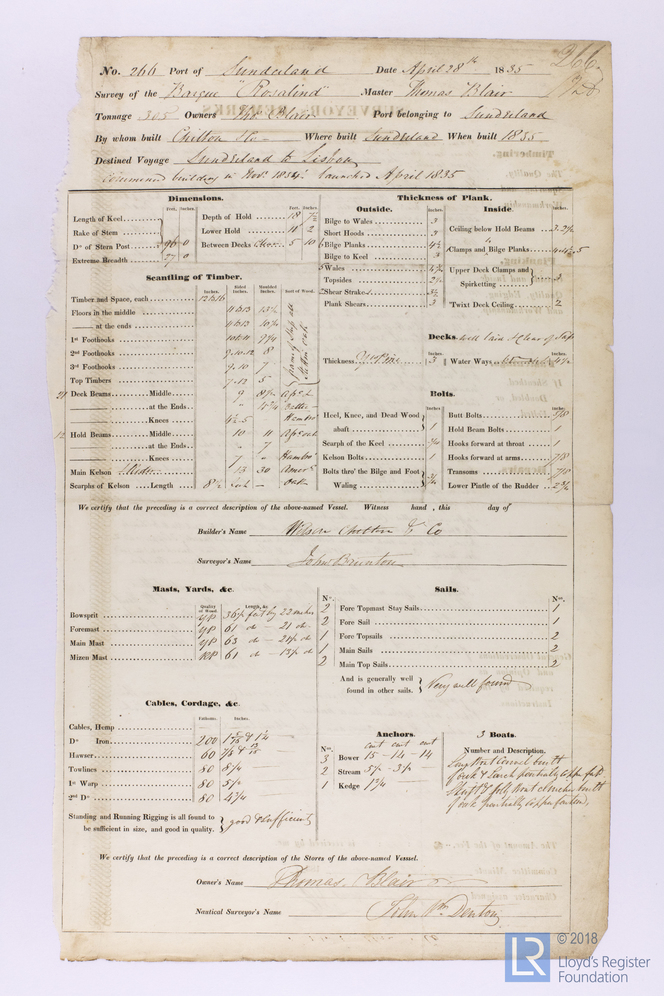 266
No. 266 Port of Sunderland Date April 28th 1835
Survey of the Barque "Rosalind" Master Thomas Blair
Tonnage 305 Owners Thos Blair Port belonging to Sunderland
By whom built Chilton & Co Where built Sunderland When built 1835
Destined Voyage Sunderland to Lisbon
Commenced building in Novr 1834. Launched April 1835
Dimensions.
Feet. Inches.
Length of Keel
Rake of Stem
Do of Stern Post 96 0
Extreme Breadth 27 0
Feet. Inches.
Depth of Hold 18 7½
Lower Hold 11 2
Between Decks 5 10
Scantling of Timber.
Inches. Sided Inches. Moulded Inches. Sort of Wood.
Timber and Space, each
Floors in the middle
at the ends
1st Foothooks
2nd Foothooks 8
3rd Foothooks 9.10 7
Top Timbers 7.12 5
21 Deck Beams Middle 9
at the Ends
Knees
12 Hold Beams Middle 10 11
at the Ends 7
Knees 7
Main Kelson 13 30 Amern
Scarphs of Kelson Length Oak
Thickness of Plank.
Outside. Inches
Bilge to Wales 3
Short Hoods 3
Bilge Planks 4½
Bilge to Keel 3
Wales
Topsides
Shear Strakes
Plank Shears 3
Thickness Y Pine 3
Inside. Inches.
Ceiling below Hold Beams
Clamps and Bilge Planks
Upper Deck Clamps and
Spirketting
'Twixt Deck Ceiling 2
Decks well laid & clear of Sap
Water Ways
Bolts.
Inches
Heel, Knee, and Dead Wood
abaft 1
Scarph of the Keel
Kelson Bolts 1
Bolts thro' the Bilge and Foot
Waling
Inches
Butt Bolts
Hold Beam Bolts 1
Hooks forward at throat 1
Hooks forward at arms 7/8
Transoms 7/8
Lower Pintle of the Rudder
We certify that the preceding is a correct description of the above-named Vessel. Witness hand, this day of
Builder's Name Wilson Chilton & Co
Surveyor's Name John Brunton
Masts, Yards, &c.
Quality of Wood. Length, &c
Bowsprit YP 36½ feet by 22 inches
Foremast YP 61 do - 21 do
Main Mast YP 63 do
Mizen Mast 61 do
Sails.
No. No.
2 Fore Topmast Stay Sails 1
2 Fore Sail 1
1 Fore Topsails 2
1 Main Sails 1
2 Main Top Sails 2
And is generally well
found in other sails. Very well found
Cables, Cordage, &c.
Fathoms. Inches.
Cables, Hemp
Do Iron 200
Hawser 60
Towlines 80
1st Warp 80
2nd Do 80
Standing and Running Rigging is all found to
be sufficient in size, and good in quality. good & sufficient
Anchors.
No. cwt cwt cwt
3 Bower 15 - 14 - 14
2 Stream
1 Kedge
3 Boats.
Number and Description.
Long boat Carvel built
of oak & Larch partially copper fast
Skiff & Jolly boat clincher built
of oak partially copper fastened
We certify that the preceding is a correct description of the Stores of the above-named Vessel.
Owner's Name Thomas Blair
Nautical Surveyor's Name John Wm Denton
LR
© 2018
Lloyd's Register
Foundation